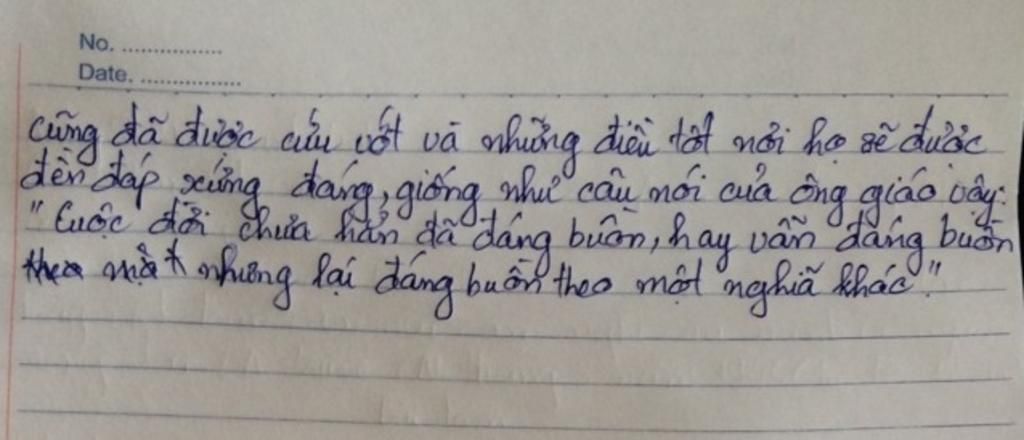 No. ................
Date. ................
cũng đã được cứu vớt và những điều tốt nơi họ sẽ được
đền đáp xứng đáng, giống như câu nói của ông giáo vậy:
"Cuộc đời chưa hẳn đã đáng buồn, hay vẫn đáng buồn
nhưng lại đáng buồn theo một nghĩa khác"